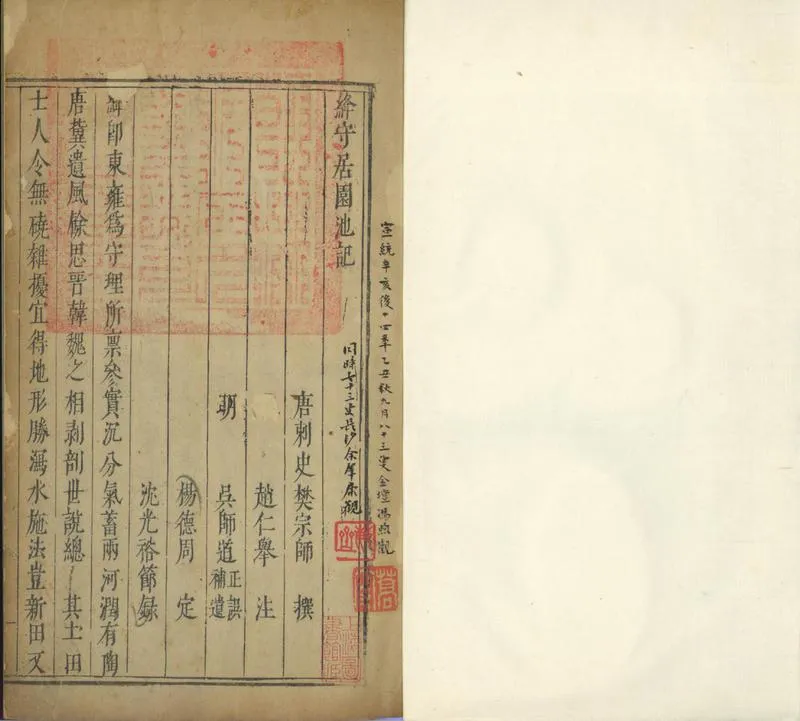 宣統辛亥後十四年乙丑秋九月八十三叟金壇馮煦觀
同時七十三叟長沙余肇康觀
絳守居園池記
唐刺史樊宗師 撰
趙仁舉 注
明 吳師道 正誤 補遺
楊德周 定
沈光裕節錄
絳即東雍為守理所禀參實沉分氣蓄兩河潤有陶
唐冀遺風餘思晉韓魏之相剥剖世說總其土田
士人令無磽雜擾宜得地形勝瀉水施法豈新田又
上海圖書館藏